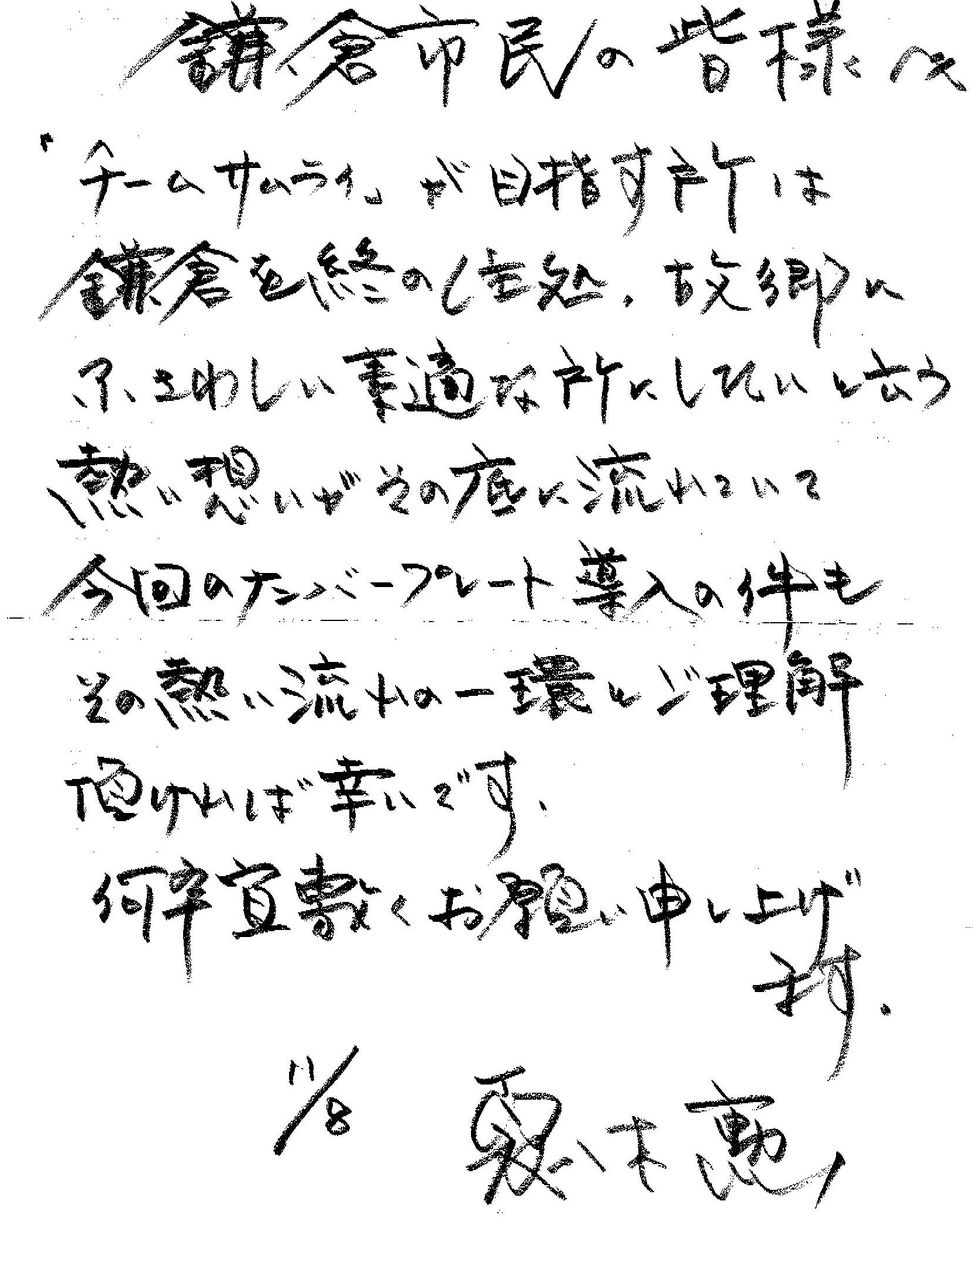 鎌倉市民の皆様へ
「チームサムライ」が目指す所は
鎌倉を終の住処、故郷に
ふさわしい素適な所にしたいと云う
熱い想いがその底に流れていて
今回のナンバープレート導入の件も
その熱い流れの一環とご理解
頂ければ幸いです.
何卒宜敷くお願い申し上げ
ます.
11/8 夏木勲